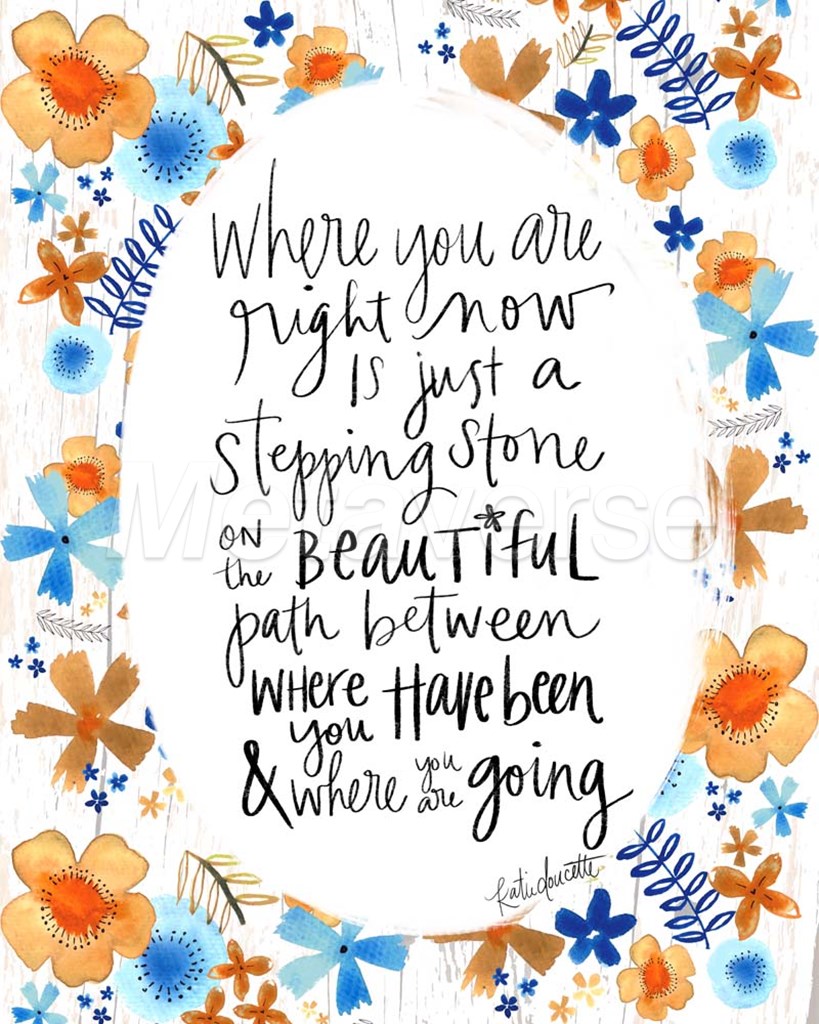 where you are
right now
is just a
stepping stone
on the BEAUTIFUL
path between
WHERE you Have been
& where you are going
Katie doucette
Metaverse